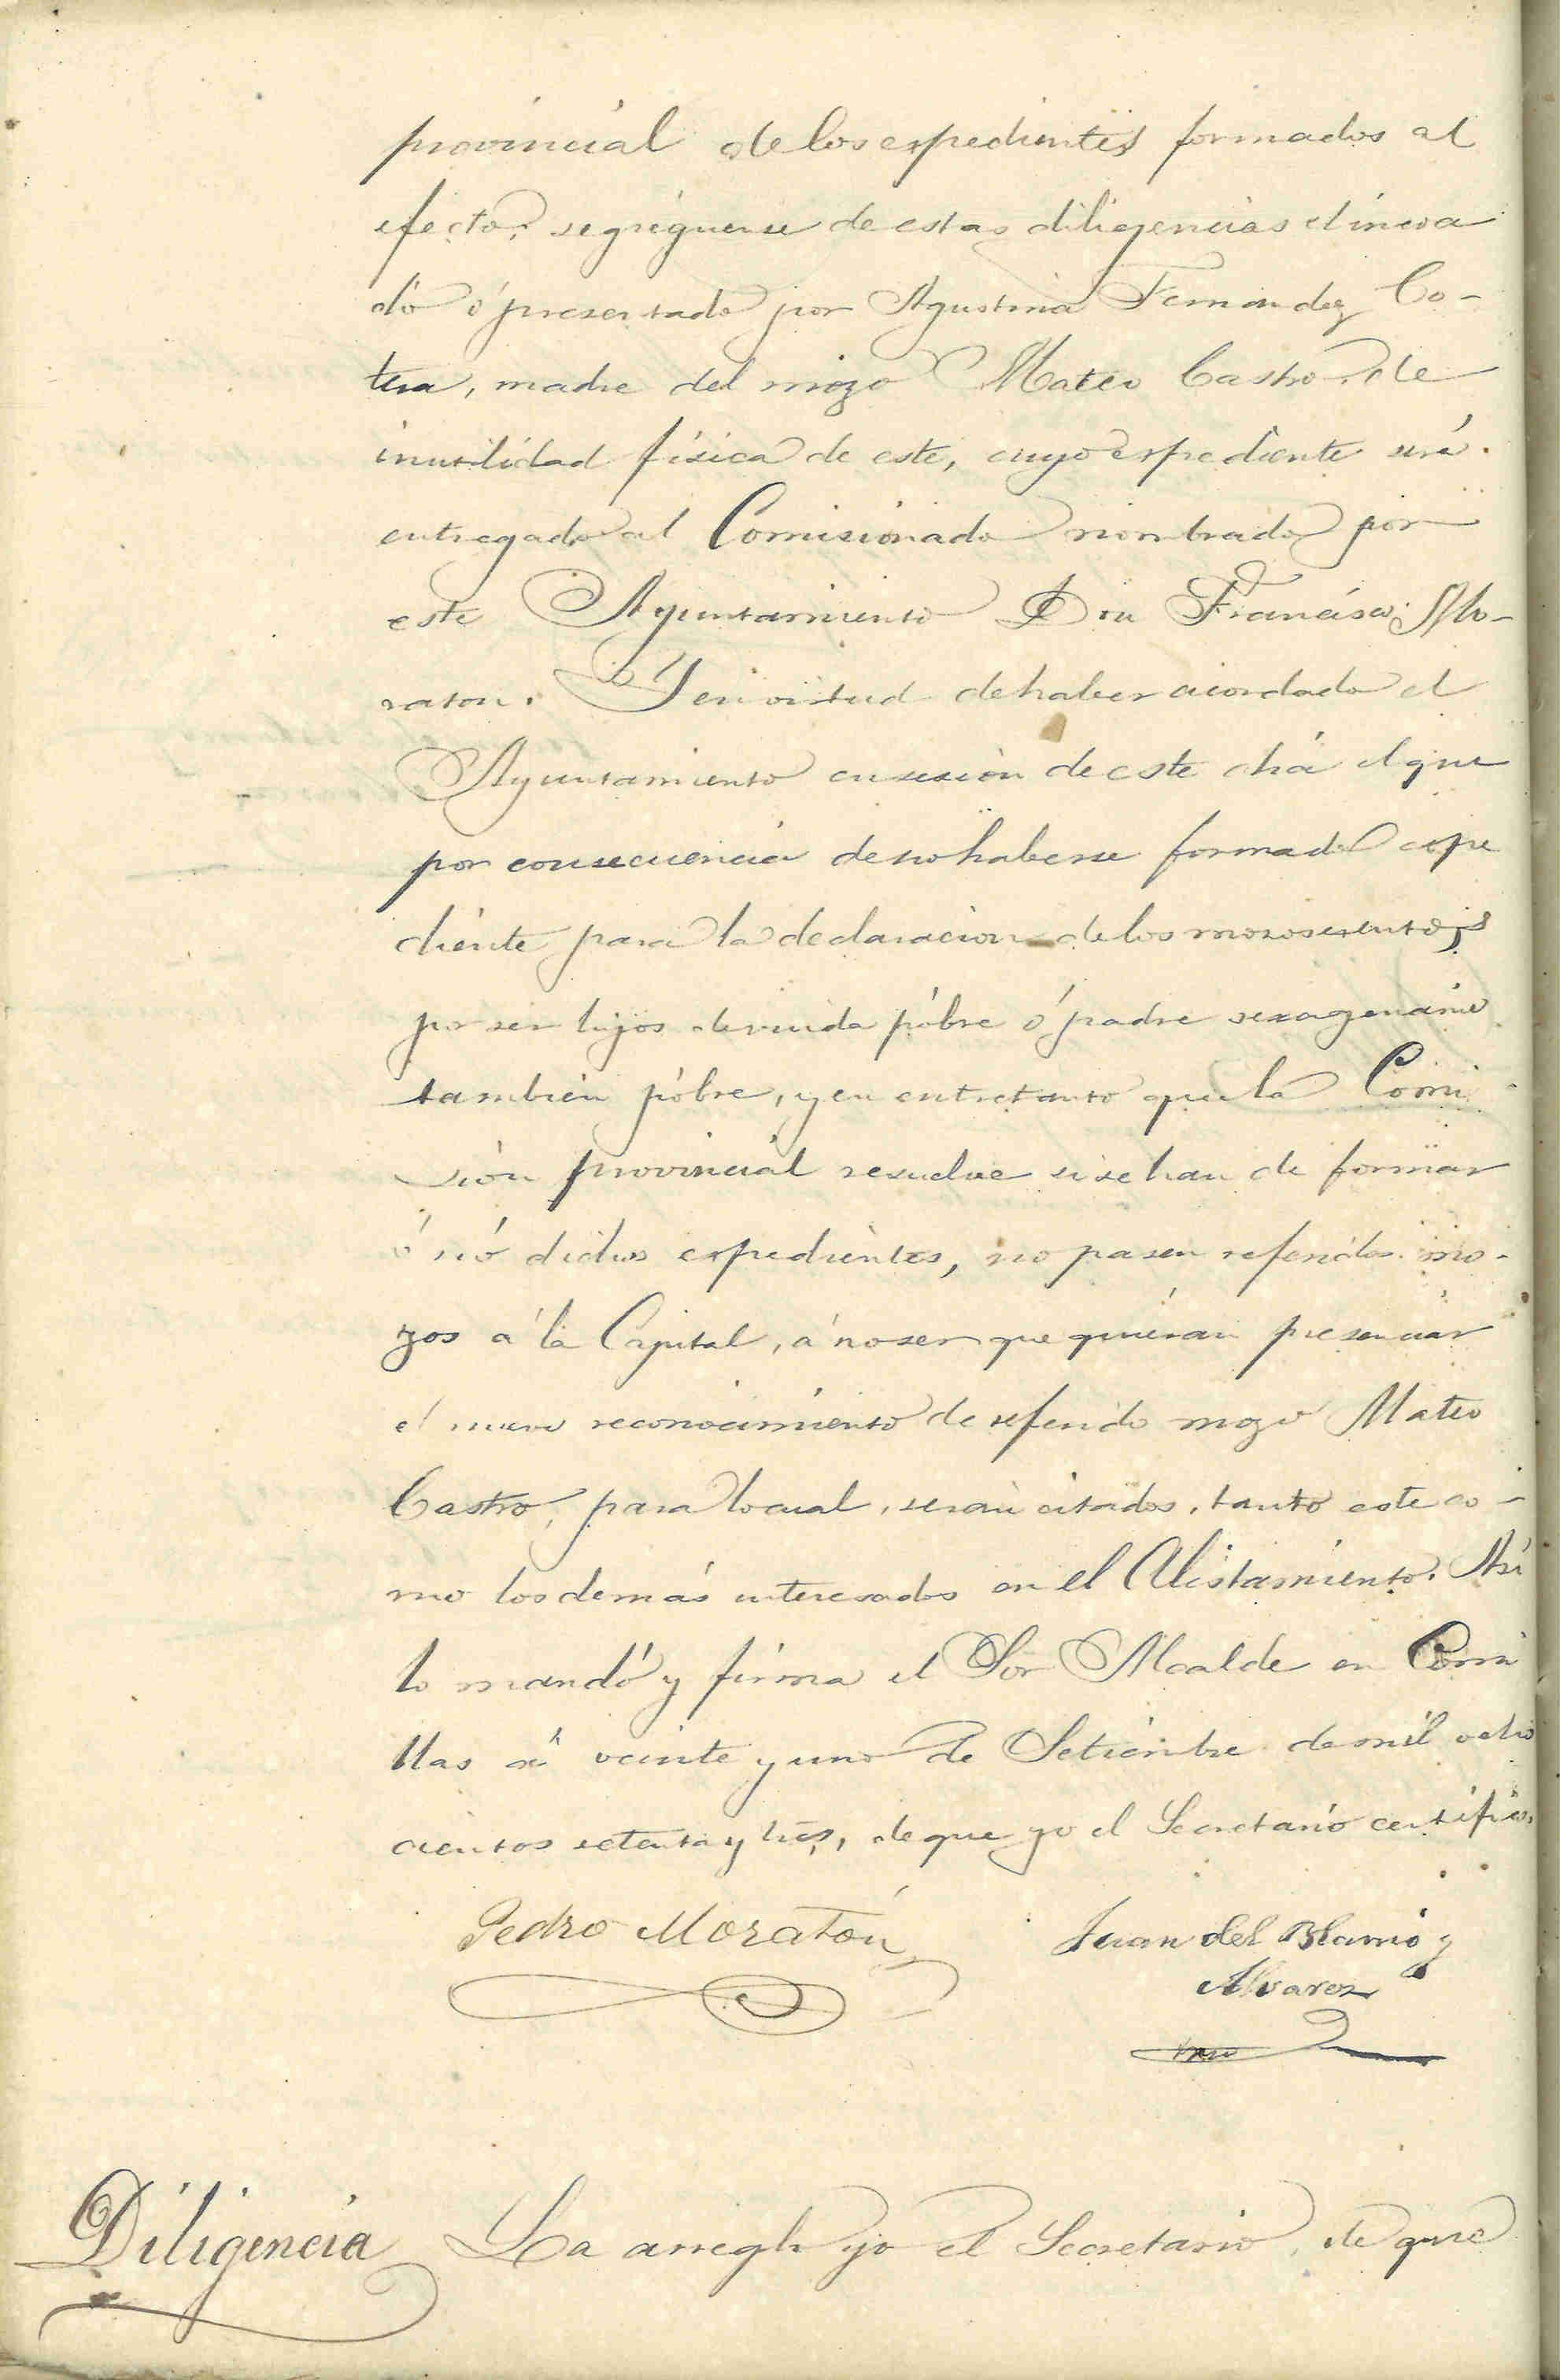 provincial de los espedientes formados al
efecto, segréguense de estas diligencias el incoa
do ó presentado por Agustina Fernandez Co-
tera, madre del mozo Mateo Castro, de
inutilidad fisica de este, cuyo espediente será
entregado al Comisionado nombrado por
este Ayuntamiento Don Francisco Mo-
raton. Y en virtud de haber acordado el
Ayuntamiento en sesión de este dia el que
por consecuencia de no haberse formado espe
diente para la declaracion de los mozos esentos,
por ser hijos de viuda póbre ó padre sexagenario
tambien póbre, y en entretanto que la Comi
sión provincial resuelve si se han de formar
ó nó dichos espedientes, no pasen referidos mo-
zos á la Capital, á no ser que quieran presenciar
el nuevo reconocimiento de referido mozo Mateo
Castro, para lo cual, serán citados, tanto este co-
mo los demás interesados en el Alistamiento. Asi
lo mandó y firma el Sor Alcalde en Comi
llas á veinte y uno de Setiembre de mil ocho
cientos setenta y tres, de que yo el Secretario certifico.
Pedro Moratón
Juan del Barrio y
Alvarez
Diligencia La arreglo yo el Secretario, de que